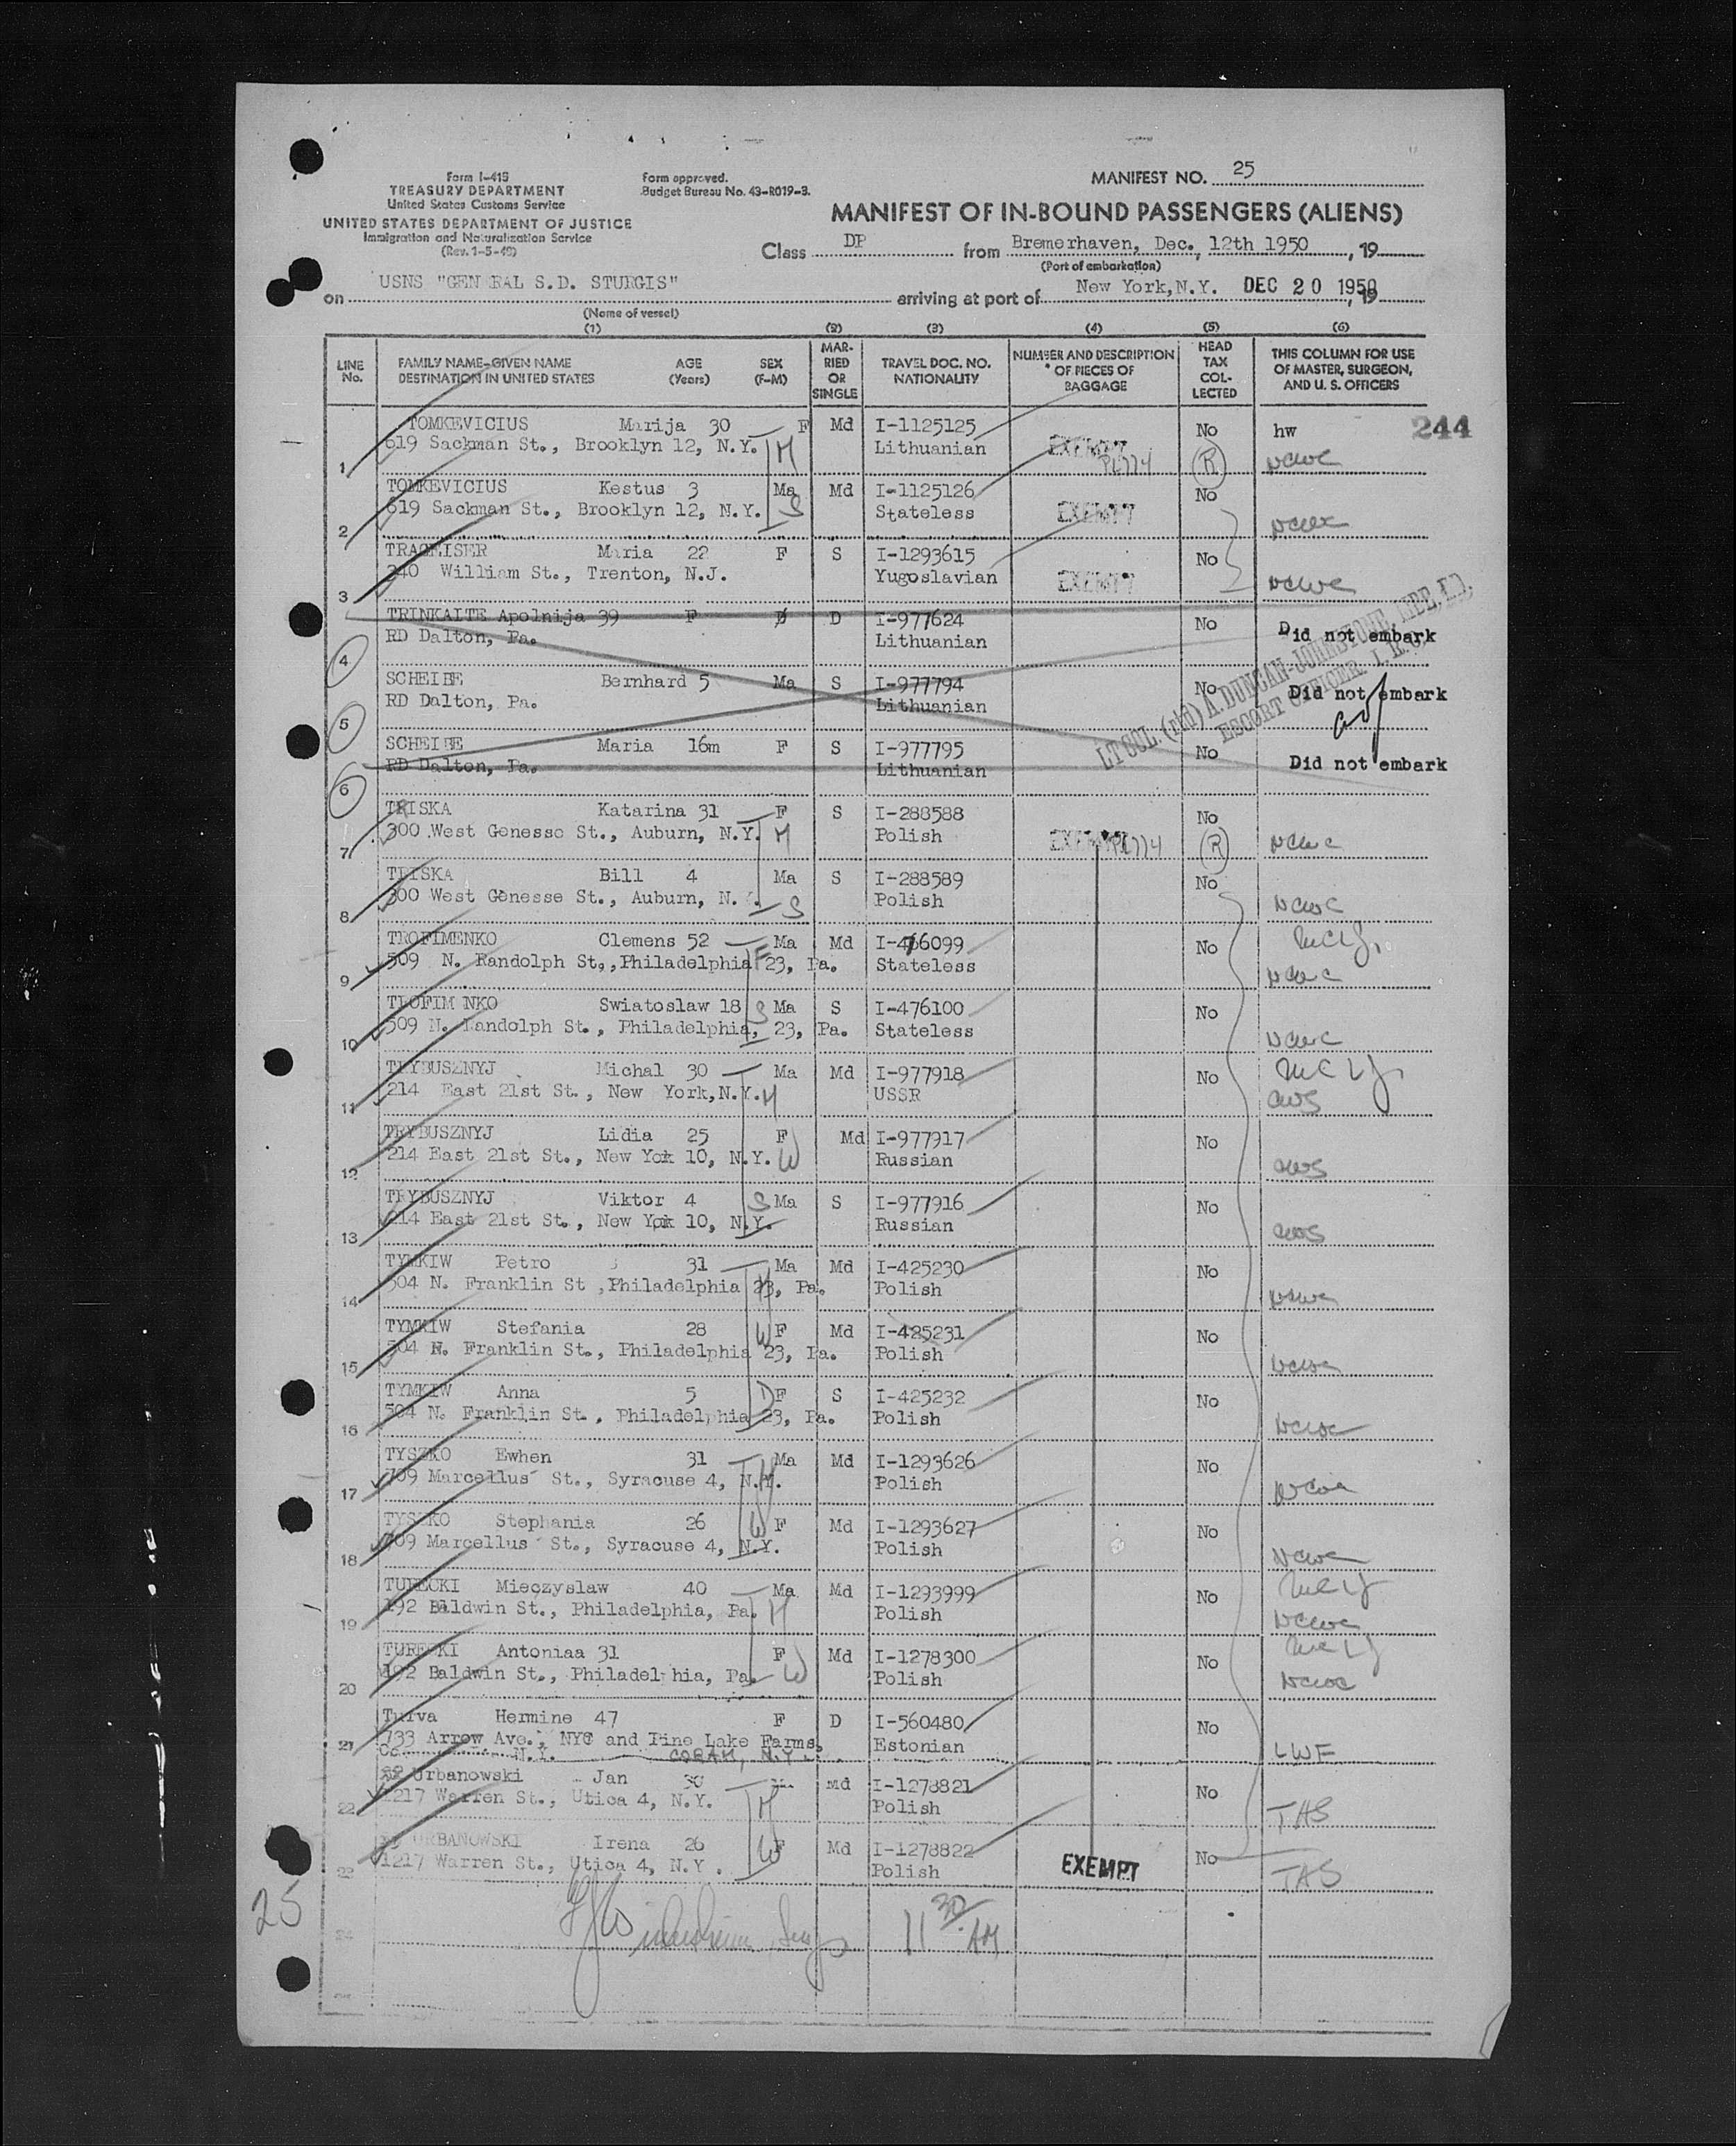 Form I-415
TREASURY DEPARTMENT
United States Customs Service
UNITED STATES DEPARTMENT OF JUSTICE
Immigration and Naturalization Service
(Rev. 1-5-49)
Form approved.
Budget Bureau No. 43-R019-3.
MANIFEST NO. 25
MANIFEST OF IN-BOUND PASSENGERS (ALIENS)
Class DP from Bremerhaven, Dec. 12th 1950, 19
(Port of embarkation)
on USNS "GEN RAL S.D. STURGIS" arriving at port of New York, N.Y. DEC 20 1950, 19
(Name of vessel)
(1) (2) (3) (4) (5) (6)
LINE No. FAMILY NAME-GIVEN NAME DESTINATION IN UNITED STATES AGE (Years) SEX (F-M) MARRIED OR SINGLE TRAVEL DOC. NO. NATIONALITY NUMBER AND DESCRIPTION OF PIECES OF BAGGAGE HEAD TAX COLLECTED THIS COLUMN FOR USE OF MASTER, SURGEON, AND U. S. OFFICERS
244
TOMKEVICIUS Marija 30 F Md I-1125125 No hw
1 619 Sackman St., Brooklyn 12, N.Y. H Lithuanian EXEMPT PL774 R NCWC
TOMKEVICIUS Kestus 3 Ma Md I-1125126 No
2 619 Sackman St., Brooklyn 12, N.Y. S Stateless EXEMPT NCWC
TRAGEISER Maria 22 F S I-1293615 No
3 240 William St., Trenton, N.J. Yugoslavian EXEMPT NCWC
TRINKAITE Apolnija 39 F D I-977624 No Did not embark
4 RD Dalton, Pa. Lithuanian
SCHEIBE Bernhard 5 Ma S I-977794 No Did not embark
5 RD Dalton, Pa. Lithuanian
SCHEIBE Maria 16m F S I-977795 No Did not embark
6 RD Dalton, Pa. Lithuanian
LT COL. (rtd) A. DUNCAN-JOHNSTONE,
ESCORT OFFICER, I.R.O.
TRISKA Katarina 31 F S I-288588 No
7 300 West Genesse St., Auburn, N.Y. M Polish EXEMPT PL774 R NCWC
TRISKA Bill 4 Ma S I-288589 No
8 300 West Genesse St., Auburn, N. . S Polish NCWC
TROFIMENKO Clemens 52 Ma Md I-476099 No
9 509 N. Randolph St., Philadelphia 23, Pa. F Stateless NCWC
TROFIM NKO Swiatoslaw 18 S Ma S I-476100 No
10 509 N. Randolph St., Philadelphia, 23, Pa. Stateless NCWC
TRYBUSZNYJ Michal 30 Ma Md I-977918 No
11 214 East 21st St., New York, N.Y. H USSR CWS
TRYBUSZNYJ Lidia 25 F Md I-977917 No
12 214 East 21st St., New Yok 10, N.Y. W Russian CWS
TRYBUSZNYJ Viktor 4 S Ma S I-977916 No
13 214 East 21st St., New Yok 10, N.Y. Russian CWS
TYMKIW Petro 31 Ma Md I-425230 No
14 504 N. Franklin St ,Philadelphia 23, Pa. H Polish NCWC
TYMKIW Stefania 28 W F Md I-425231 No
15 504 N. Franklin St., Philadelphia 23, Pa. Polish NCWC
TYMKIW Anna 5 D F S I-425232 No
16 504 N. Franklin St., Philadelphia 23, Pa. Polish NCWC
TYSZKO Ewhen 31 Ma Md I-1293626 No
17 709 Marcellus St., Syracuse 4, N.Y. H Polish NCWC
TYSZKO Stephania 26 W F Md I-1293627 No
18 709 Marcellus St., Syracuse 4, N.Y. Polish NCWC
TURECKI Mieczyslaw 40 Ma Md I-1293999 No
19 192 Baldwin St., Philadelphia, Pa. H Polish NCWC
TURECKI Antoniaa 31 F Md I-1278300 No
20 192 Baldwin St., Philadel hia, Pa. W Polish NCWC
Turva Hermine 47 F D I-560480 No
21 733 Arrow Ave., NYC and Pine Lake Farms, Estonian LWF
Co N.Y. CORAM, N.Y.
Urbanowski Jan 30 Md I-1278821 No
22 1217 Warren St., Utica 4, N.Y. H Polish TAS
URBANOWSKI Irena 26 F Md I-1278822 No
23 1217 Warren St., Utica 4, N.Y. W Polish EXEMPT TAS
25
24 11 30 AM